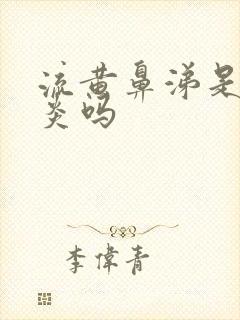 流黄鼻涕是
炎吗
李偉青